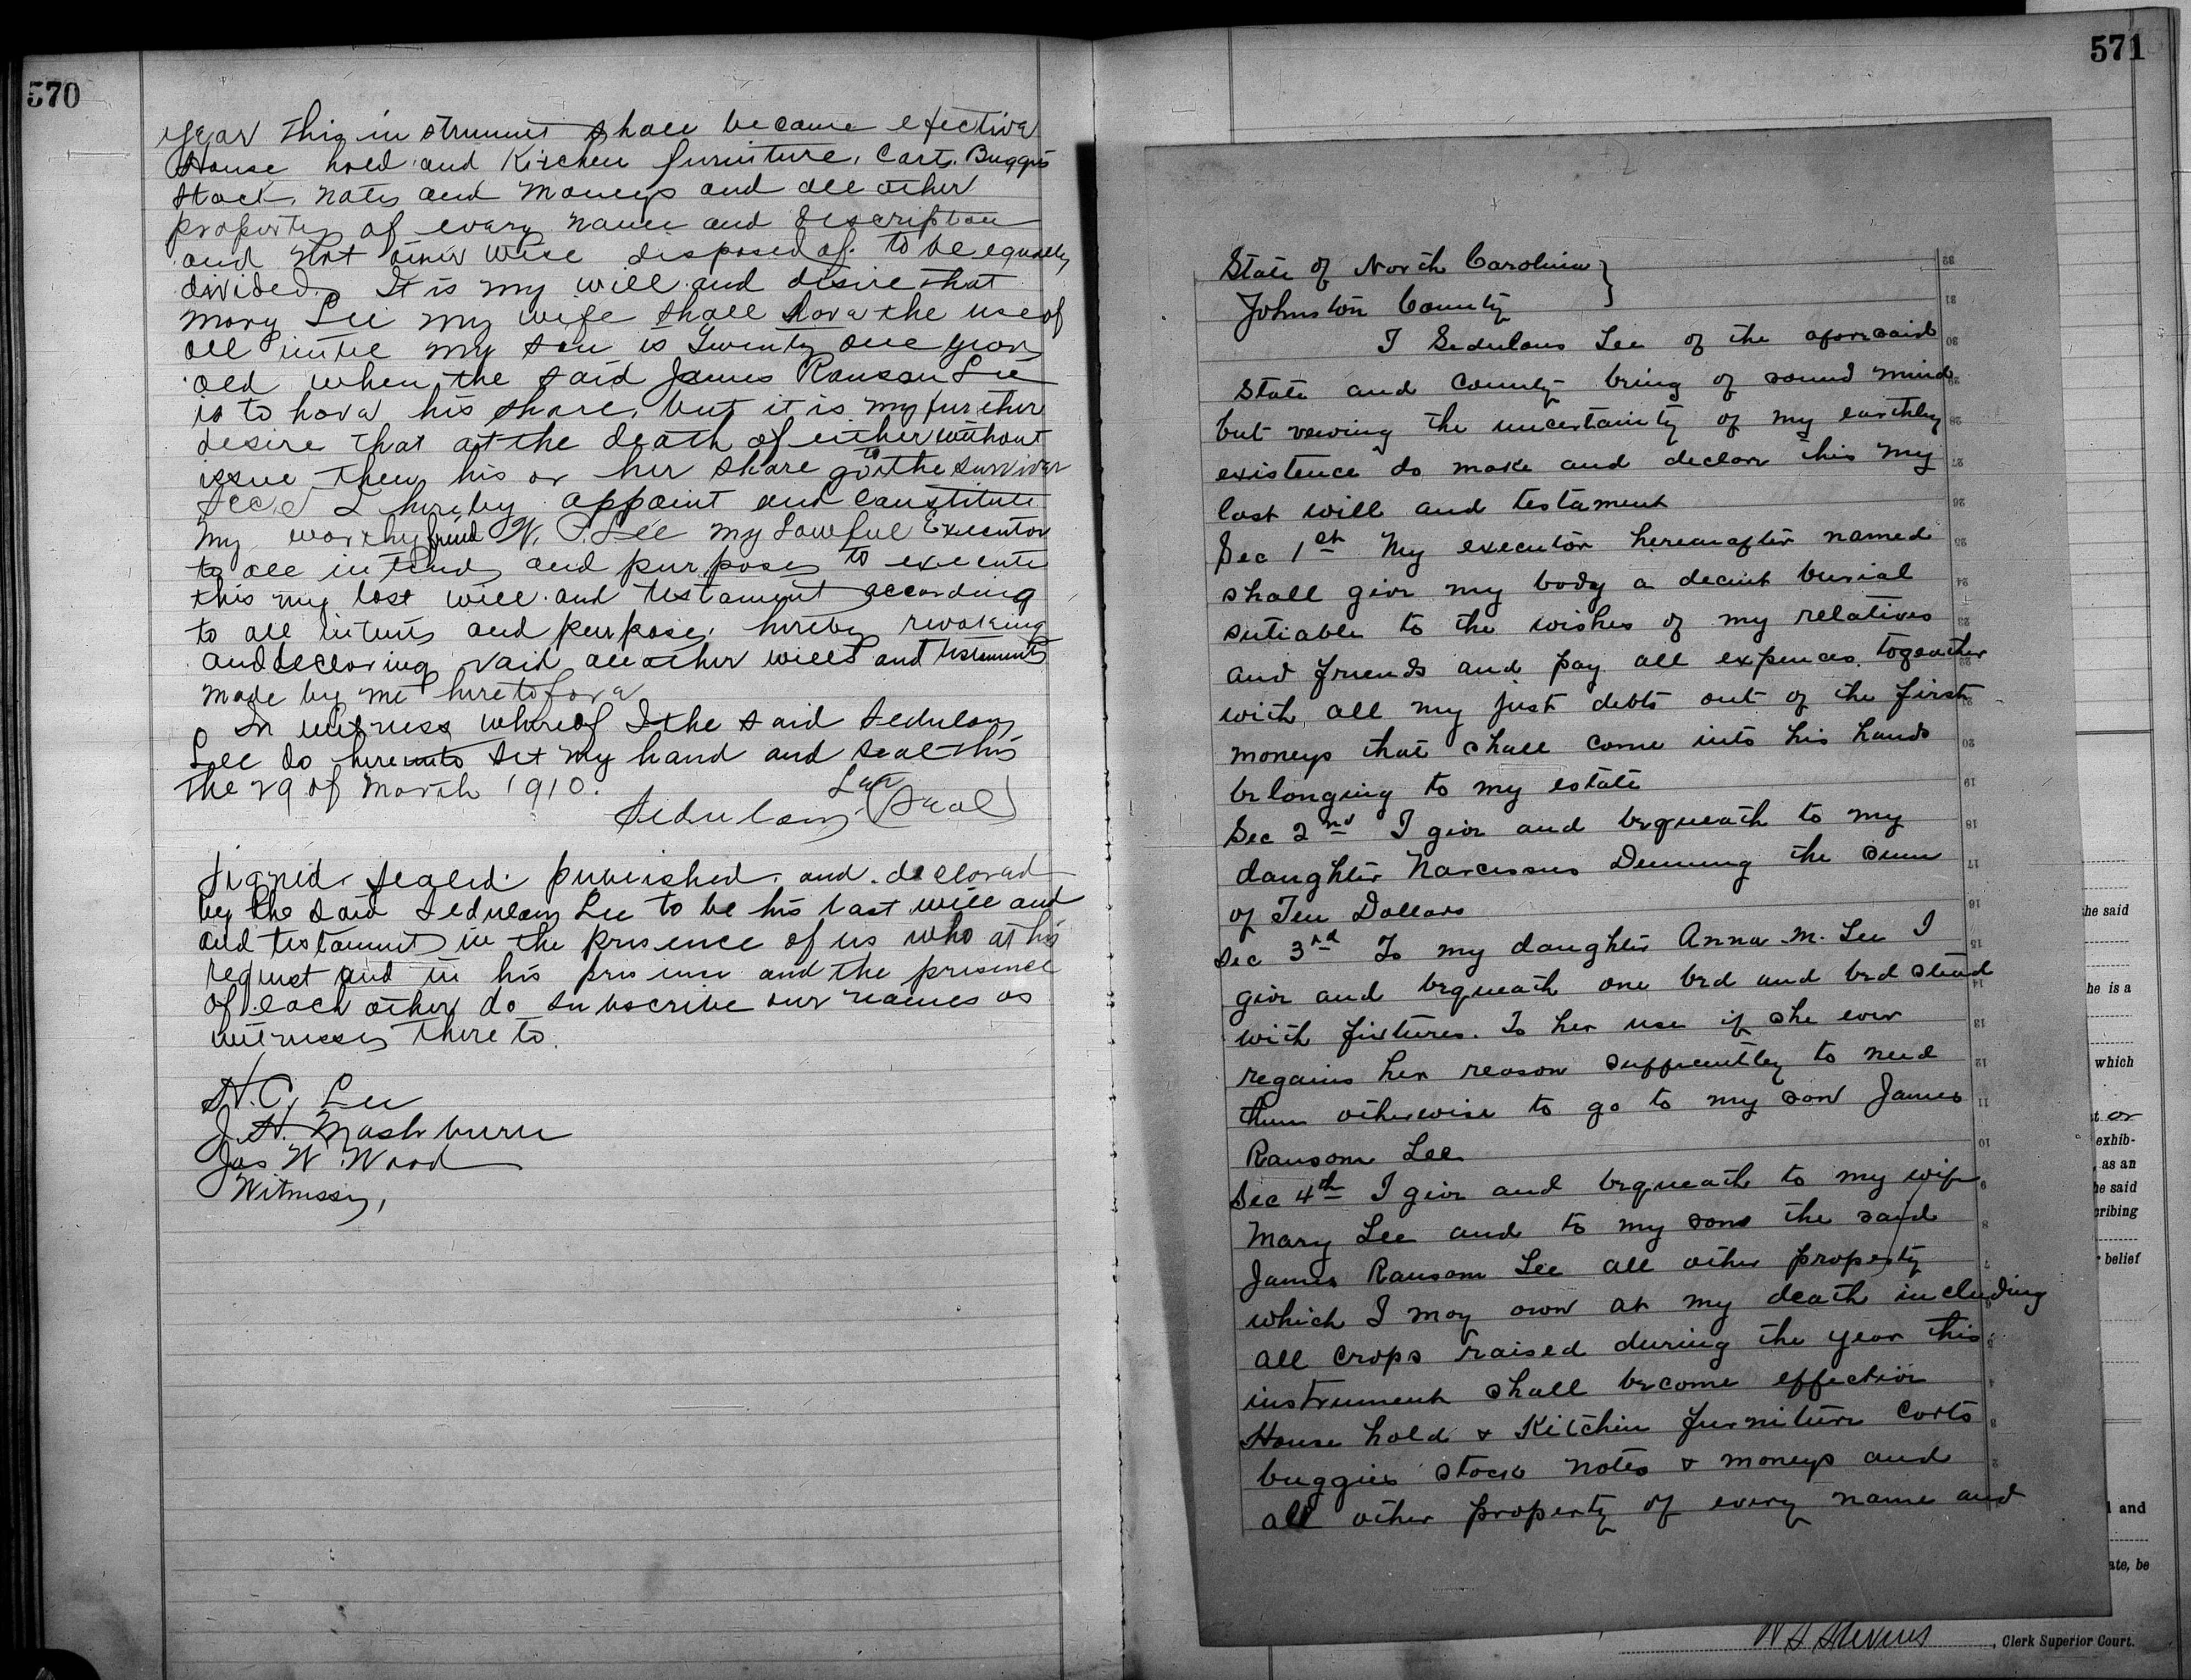 570
year this instrument shall became efective
House hold and Kitchen furniture, Cart. Buggis
Stock, nots and Moneys and all other
property of every name and description
and not other wise disposed of to be equally
divided. It is my will and desire that
Mary Lee my wife shall have the use of
all until my son is Twenty one years
old when the said James Ransom Lee
is to have his share, but it is my further
desire that at the death of either without
issue then his or her share go to the survivor
I hereby appoint and constitute
My worthy friend W. Lee my Lawful Executor
to all intends and purposes to execute
this my last will and testament according
to all intents and purposes, hereby revoking
and declaring void all other wills and testaments
made by me heretofore
In witness whereof I the said Sedulous
Lee do hereunto set my hand and seal this
the 29 of March 1910.
Sedulous Lee (Seal)
Signed, sealed, published, and declared
by the said Sedulous Lee to be his last will and
and testament in the presence of us who at his
request and in his presence and the presence
of each other do subscribe our names as
witnesses there to.
H. C. Lee
J. H. Mashburn
Jas W. Wood
Witnesses,
571
State of North Carolina }
Johnston County
I Sedulous Lee of the aforesaid
State and County being of sound mind
but vewing the uncertainty of my earthly
existence do make and declare this my
last will and testament
Sec 1st My executor hereinafter named
shall give my body a decent burial
sutiable to the wishes of my relatives
and friends and pay all expences together
with all my just debts out of the first
moneys that shall come into his hands
belonging to my estate
Sec 2nd I give and bequeath to my
daughter Narcissus Denning the sum
of Ten Dollars
Sec 3rd To my daughter Anna M. Lee I
give and bequeath one bed and bed stead
with fixtures. To her use if she ever
regains her reason sufficiently to need
them otherwise to go to my son James
Ransom Lee
Sec 4th I give and bequeath to my wife
Mary Lee and to my sons the said
James Ransom Lee all other property
which I may own at my death including
all crops raised during the year this
instrument shall become effective
House hold & Kitchen furniture Carts
buggies stock notes & moneys and
all other property of every name and
he said
he is a
which
or
exhib-
, as an
he said
cribing
belief
and
ate, be
, Clerk Superior Court.